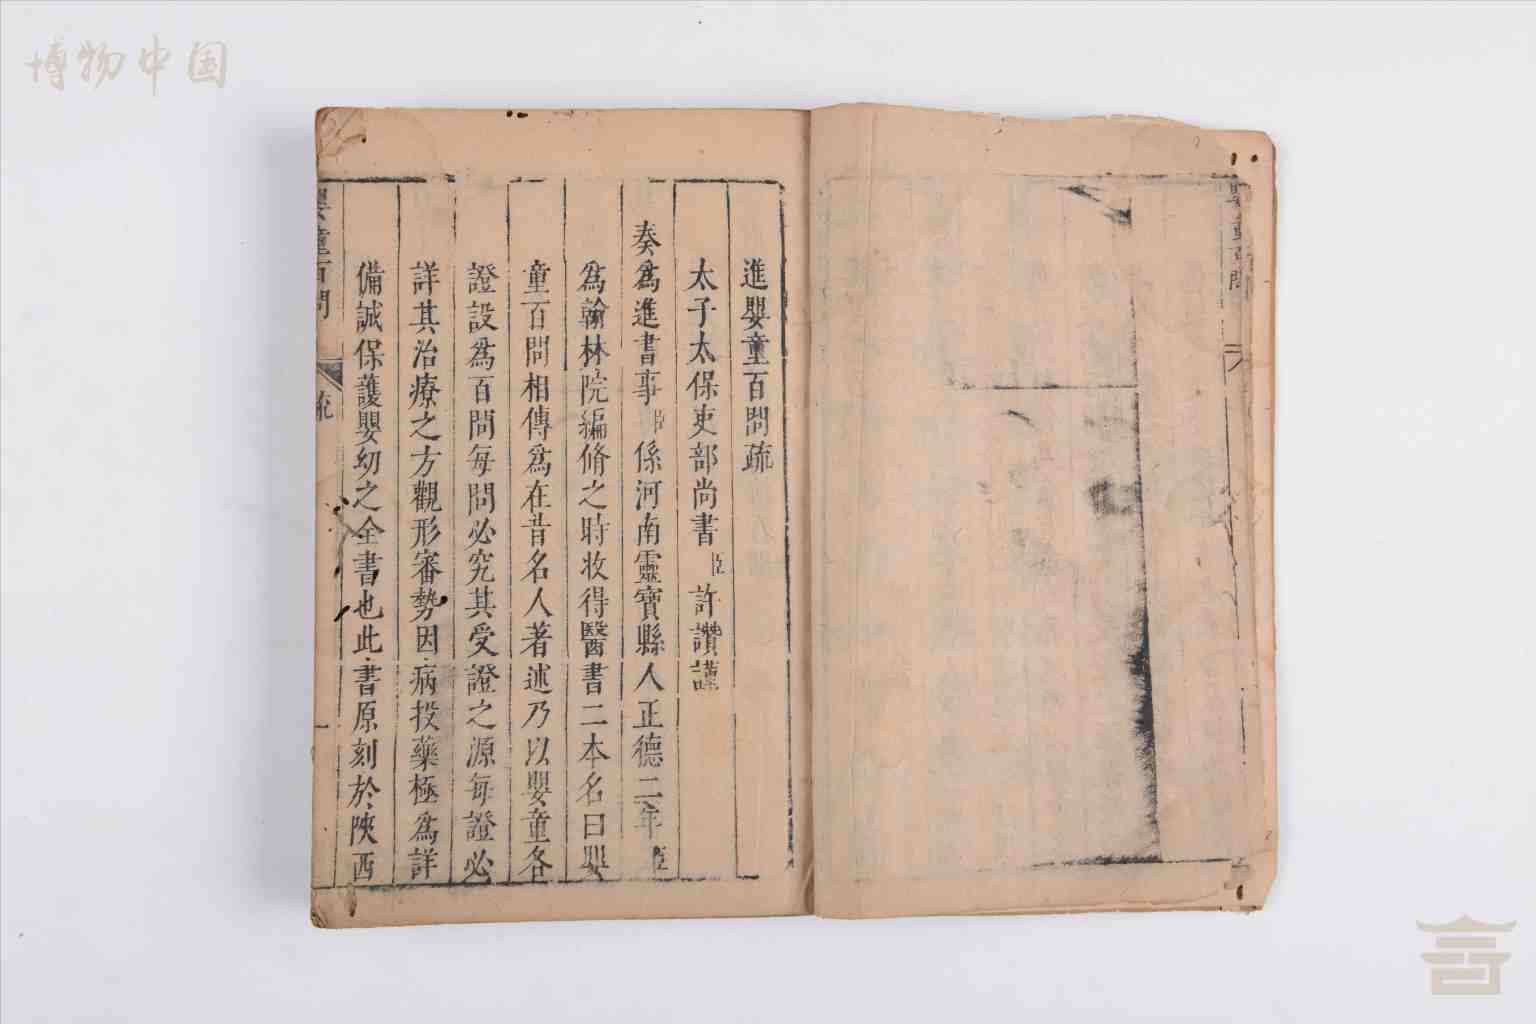 博物中国
嬰童百問
進嬰童百問疏
太子太保吏部尚書臣許讚謹
奏爲進書事臣係河南靈寶縣人正德二年臣
爲翰林院編脩之時收得醫書二本名曰嬰
童百問相傳爲在昔名人著述乃以嬰童各
證設爲百問每問必究其受證之源每證必
詳其治療之方觀形審勢因病投藥極爲詳
備誠保護嬰幼之全書也此書原刻於陝西
嬰童百問
疏
一